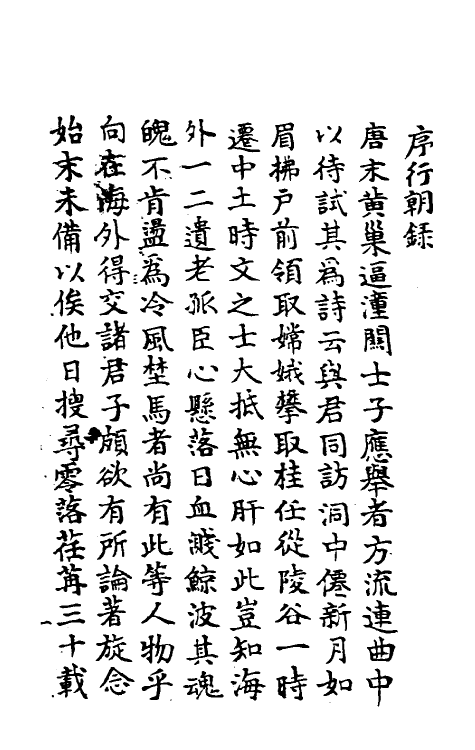 序行朝録
唐末黄巢逼潼關士子應舉者方流連曲中
以待試其爲詩云與君同訪洞中僊新月如
眉拂戸前領取嫦娥攀取桂任從陵谷一時
遷中土時文之士大抵無心肝如此豈知海
外一二遺老孤臣心懸落日血濺鯨波其魂
魄不肯盪爲冷風埜馬者尚有此等人物乎
向在海外得交諸君子頗欲有所論著旋念
始末未備以俟他日搜尋零落荏苒三十載